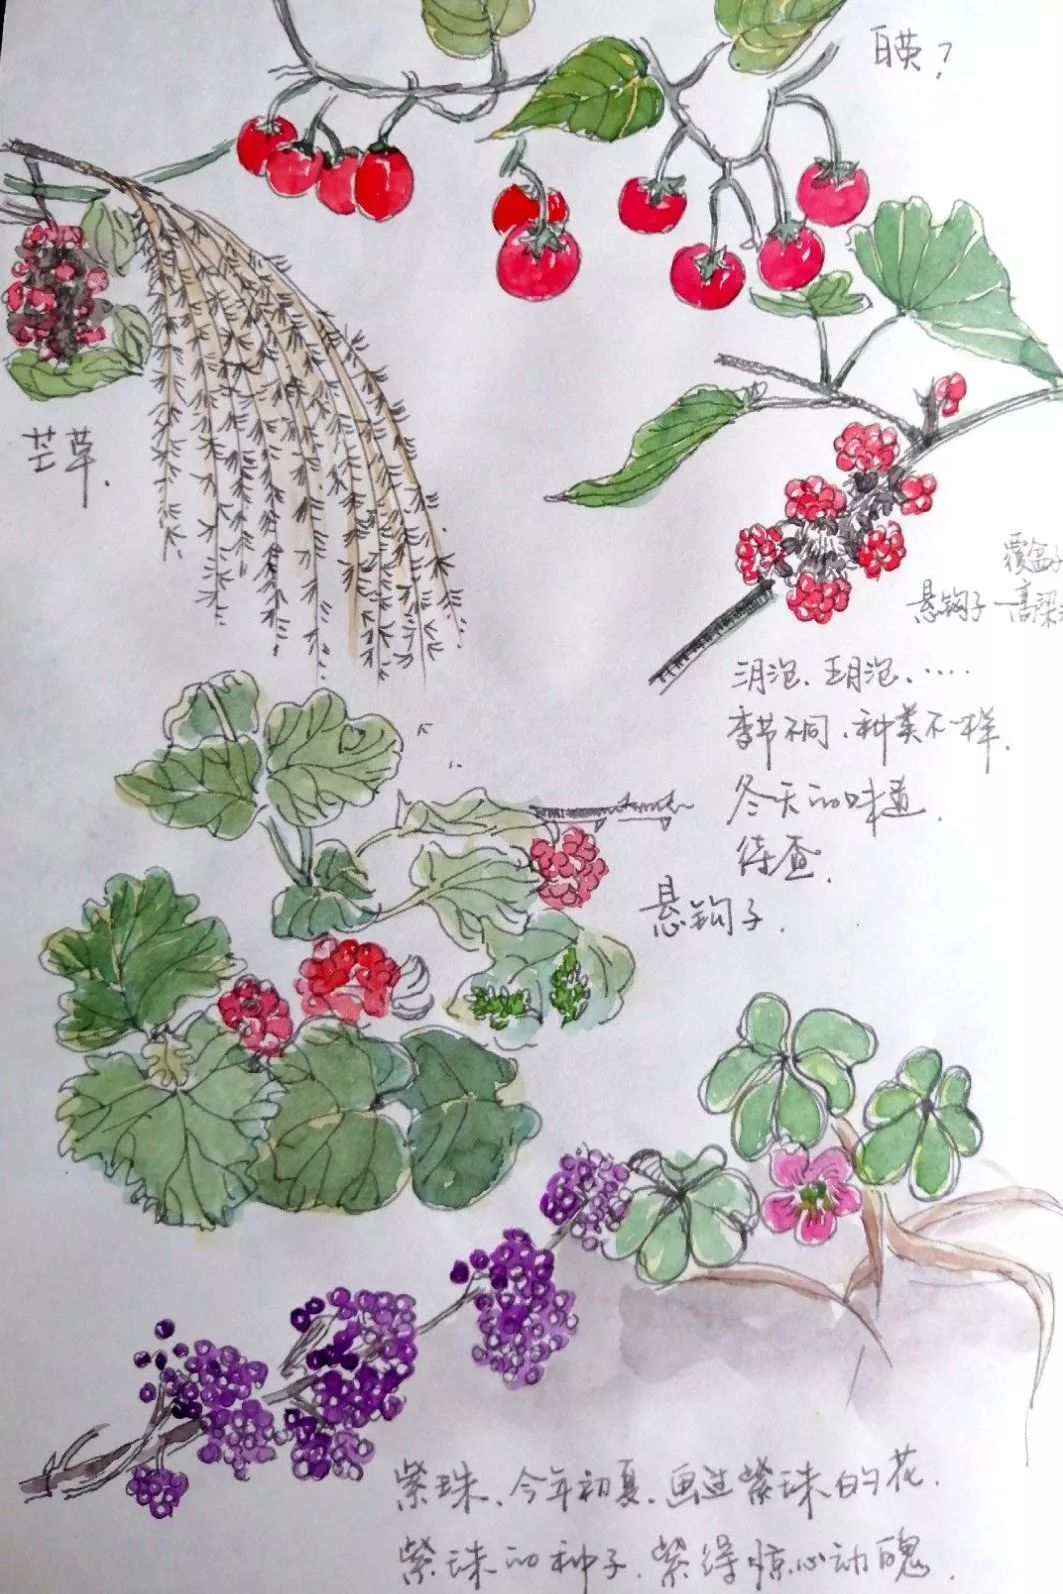 白英?
芒草.
覆盆子
悬钩子 高粱
三月泡、五月泡、……
季节不同、种类不一样.
冬天的味道.
待查.
悬钩子.
紫珠、今年初夏、画过紫珠的花.
紫珠的种子、紫得惊心动魄.